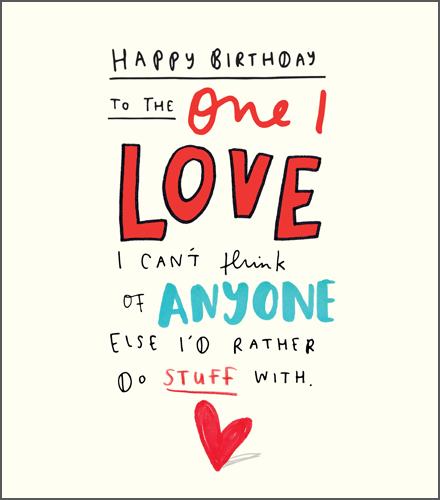 HAPPY BIRTHDAY
TO THE One I
LOVE
I CAN'T think
OF ANYONE
ELSE I'D RATHER
DO STUFF WITH.